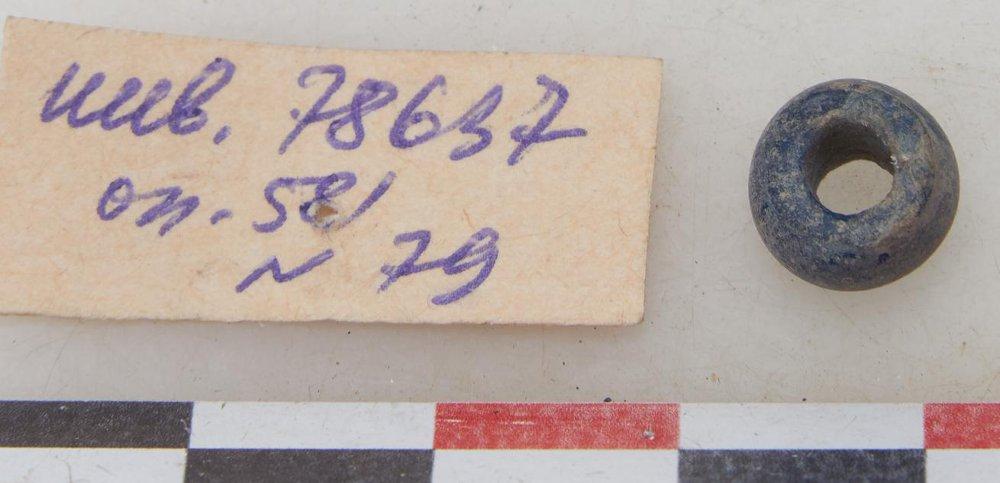 инв. 78637
оп. 581
N 79